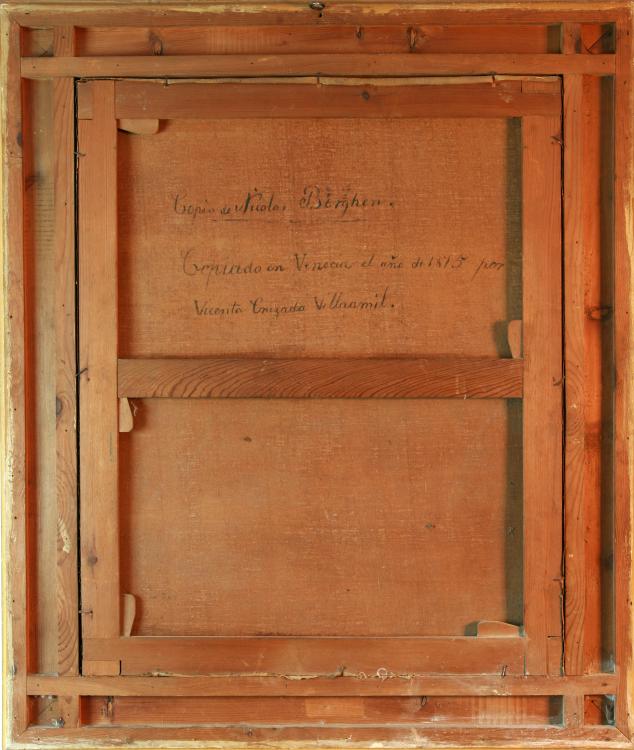 Copia de Nicolas Berghen.
Copiado en Venecia el año de 1875 por
Vicente Cruzada Villaamil.